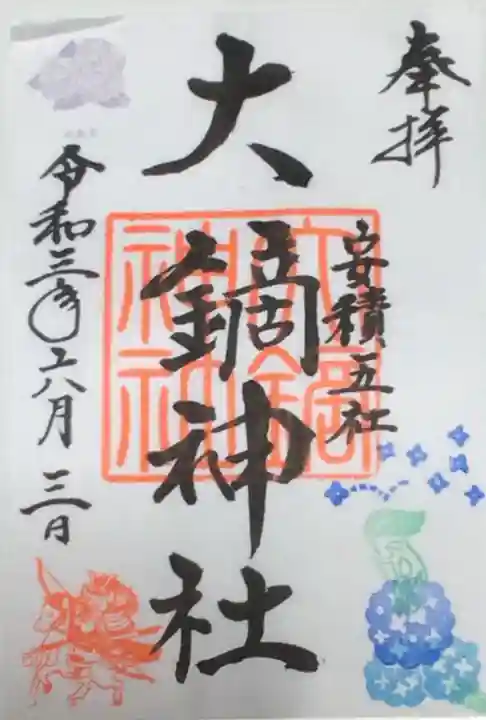 奉拝
安積五社
大鏑神社
大鏑
神社
令和三年六月三日